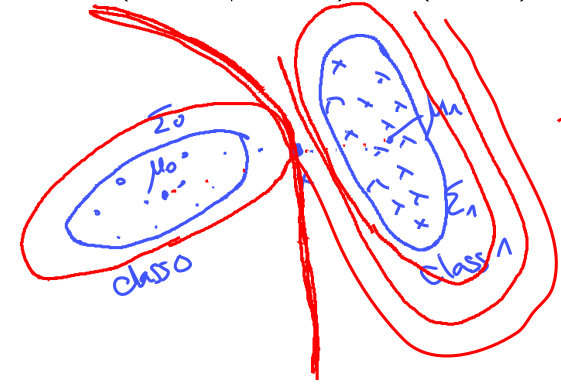 Σ0
μ0
class 0
μ1
Σ1
class 1